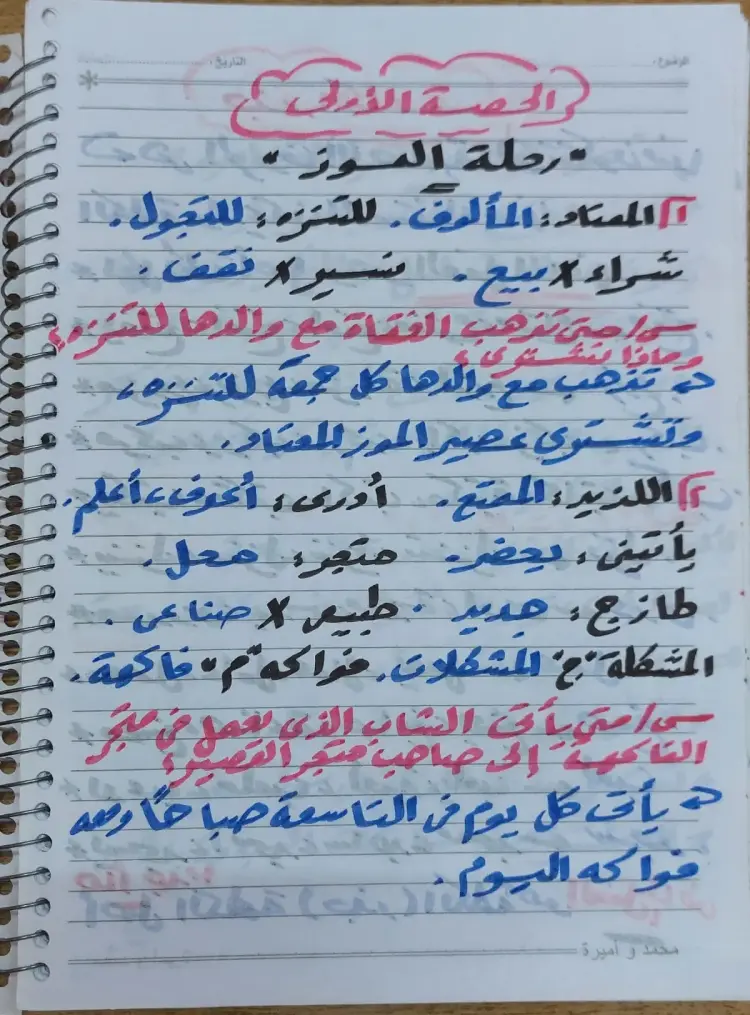 الموضوع:
التاريخ:
الحصة الأولى
"رحلة الموز"
١) المعتاد: المألوف. للتنزه: للتجول.
شراء X بيع. نسير X نقف.
س/ متى تذهب الفتاة مع والدها للتنزه؟
وماذا تشتري؟
ج تذهب مع والدها كل جمعة للتنزه،
وتشتري عصير الموز المعتاد.
٢) اللذيذ: الممتع. أدرى: أعرف، أعلم.
يأتيني: يحضر. متجر: محل.
طازج: جديد. طبيعي X صناعي.
المشكلة "ج" المشكلات. فواكه "م" فاكهة.
س/ متى يأتي الشاب الذي يعمل في متجر
الفاكهة إلى صاحب متجر العصير؟
ج يأتي كل يوم في التاسعة صباحًا ومعه
فواكه اليوم.
محمد و أميرة